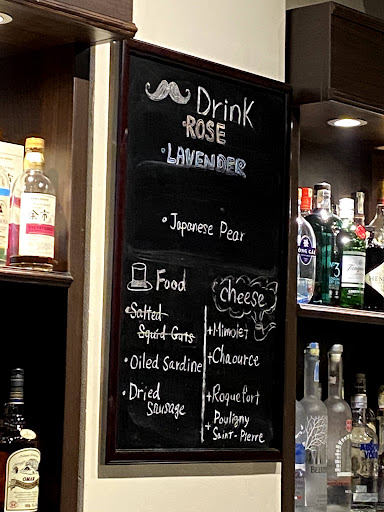 Drink
・ROSE
・LAVENDER
・Japanese Pear
Food
・Salted
Squid Guts
・Oiled Sardine
・Dried
Sausage
cheese
+Mimolet
+Chaource
+Roquefort
+Pouligny
Saint-Pierre
余市
OMAR
3